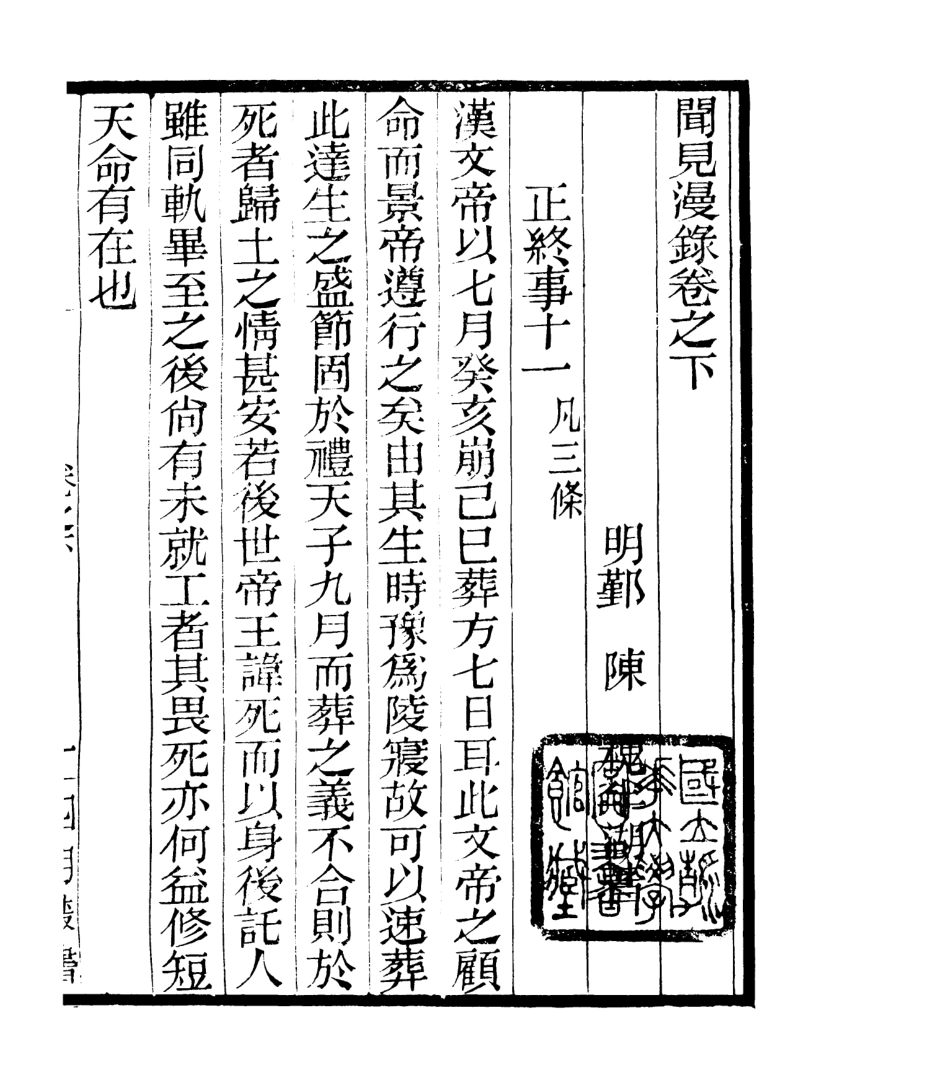 聞見漫錄卷之下
明鄞　陳　槐　　著
正終事十一　凡三條
漢文帝以七月癸亥崩己巳葬方七日耳此文帝之顧
命而景帝遵行之矣由其生時豫爲陵寢故可以速葬
此達生之盛節固於禮天子九月而葬之義不合則於
死者歸土之情甚安若後世帝王諱死而以身後託人
雖同軌畢至之後尙有未就工者其畏死亦何益修短
天命有在也